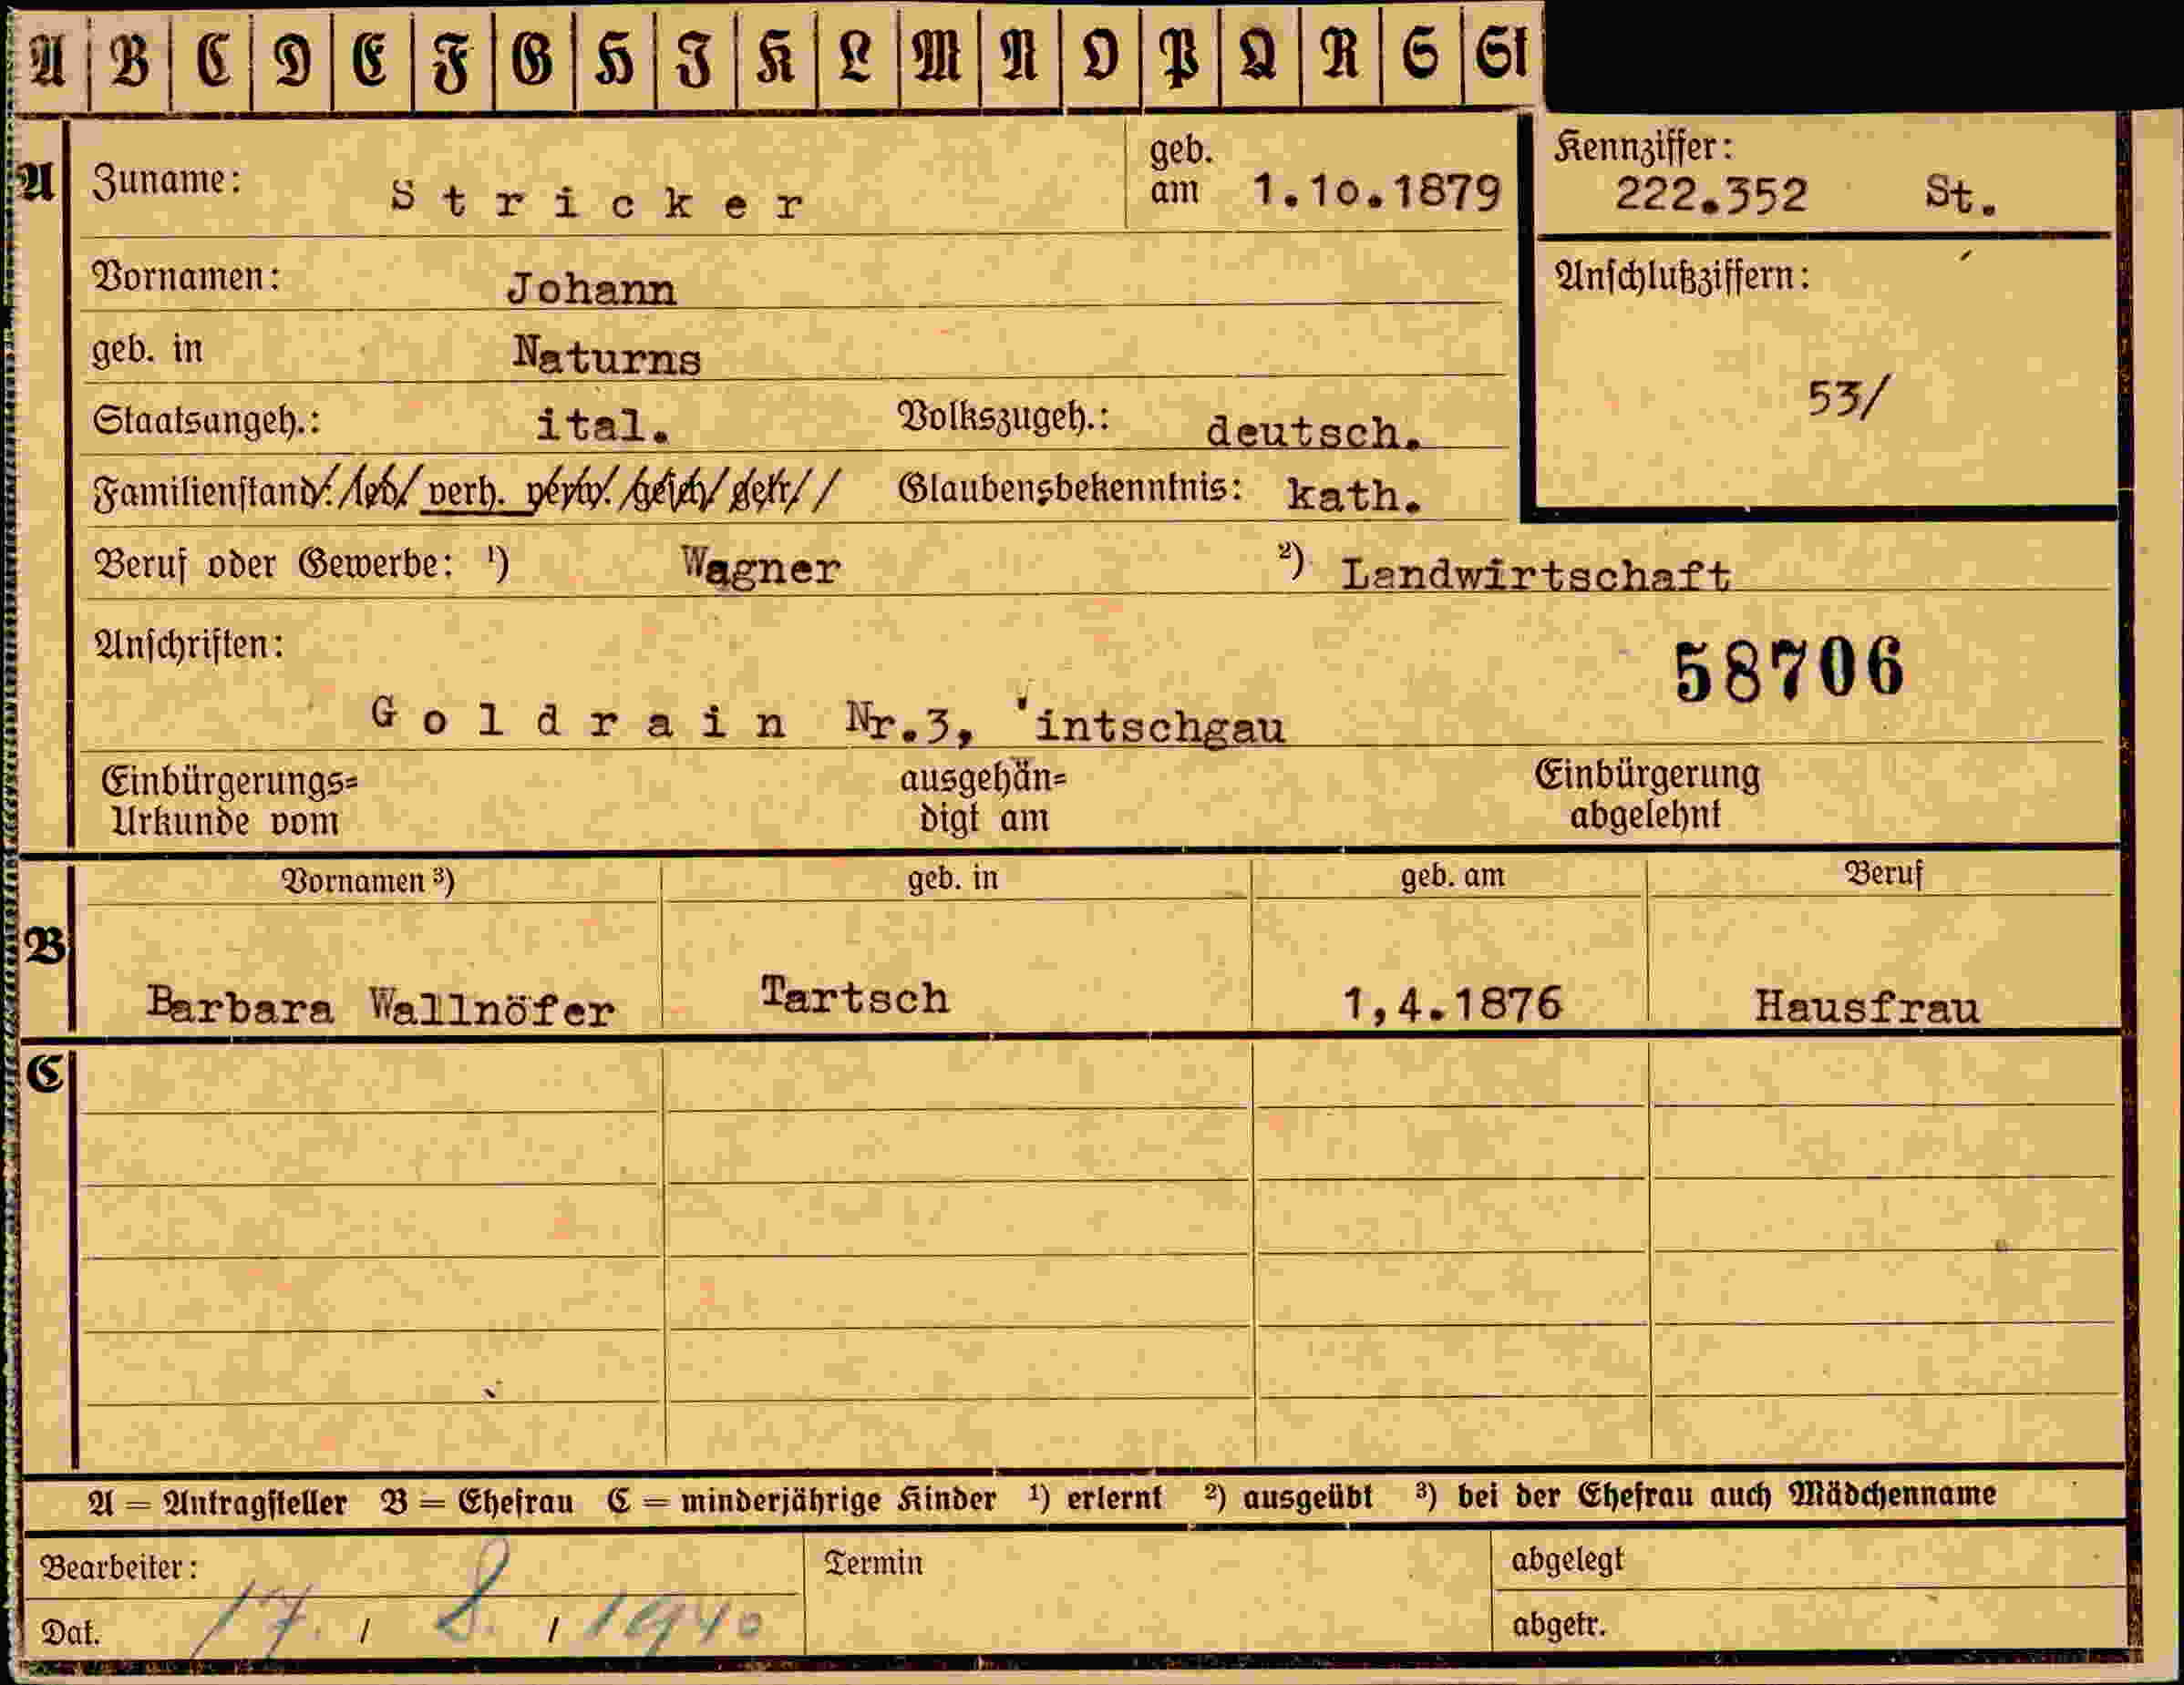 A B C D E F G H I K L M N O P Q R S St
A Zuname: Stricker geb. am 1.10.1879 Kennziffer: 222.352 St.
Vornamen: Johann Anschlußziffern:
geb. in Naturns
53/
Staatsangeh.: ital. Volkszugeh.: deutsch.
Familienstand: led. verh. verw. gesch. getr. Glaubensbekenntnis: kath.
Beruf oder Gewerbe: ¹) Wagner ²) Landwirtschaft
Anschriften:
58706
Goldrain Nr.3, 'intschgau
Einbürgerungs= ausgehän= Einbürgerung
Urkunde vom digt am abgelehnt
Vornamen ³) geb. in geb. am Beruf
B
Barbara Wallnöfer Tartsch 1,4.1876 Hausfrau
C
A = Antragsteller B = Ehefrau C = minderjährige Kinder ¹) erlernt ²) ausgeübt ³) bei der Ehefrau auch Mädchenname
Bearbeiter: Termin abgelegt
Dat. 17. / 8. / 1940 abgetr.